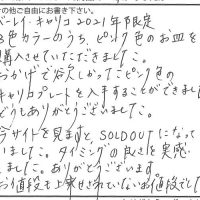 の他ご自由にお書き下さい。
バーレイ・キャリコ2021年限定
3色カラーのうち、ピンク色のお皿を
購入させていただきました。
おかげで欲しかったピンク色の
キャリコプレートを入手することができまし
どうもありがとうございました。
今サイトを見ますと、SOLDOUTになって
いました。タイミングの良さを実感
しました。ありがとうございます。
お値段も上乗せされていないお値段でした